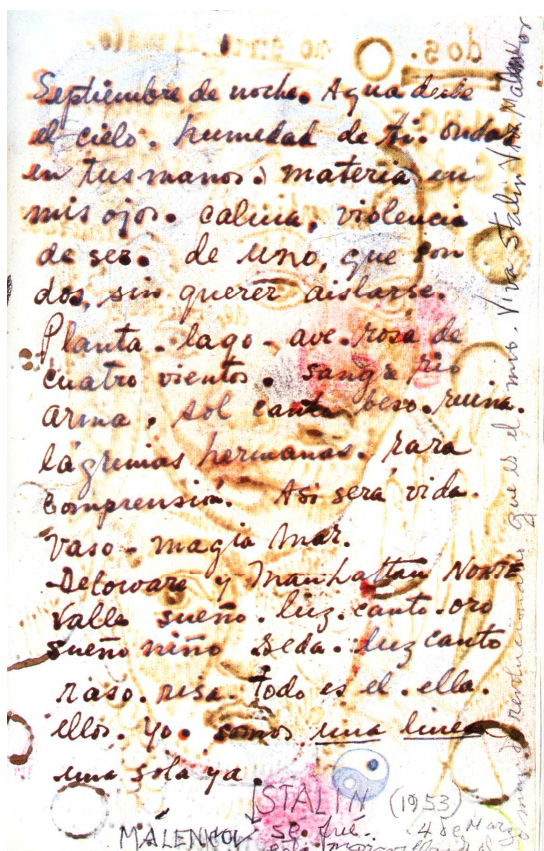 dos.
Septiembre de noche. Agua desde
el cielo. humedad de ti. ondas
en tus manos. materia en
mis ojos. calma, violencia
de ser. de uno, que son
dos, sin querer aislarse.
Planta. lago. ave. rosa de
cuatro vientos. sangre rio
arma, sol canta beso. ruina.
lágrimas hermanas. rara
comprensión. Asi será vida.
Vaso - magia Mar.
Deloware y Manhattan NORTE
Valle sueño. luz. canto - oro
sueño niño seda. luz canto
raso. risa. todo es el. ella.
ellos. yo. somos una linea
una sola ya
STALIN (1953)
MALENKOV se fué. 4 de Marzo
revolucionario que es el mio. Viva Stalin Viva Malenkov